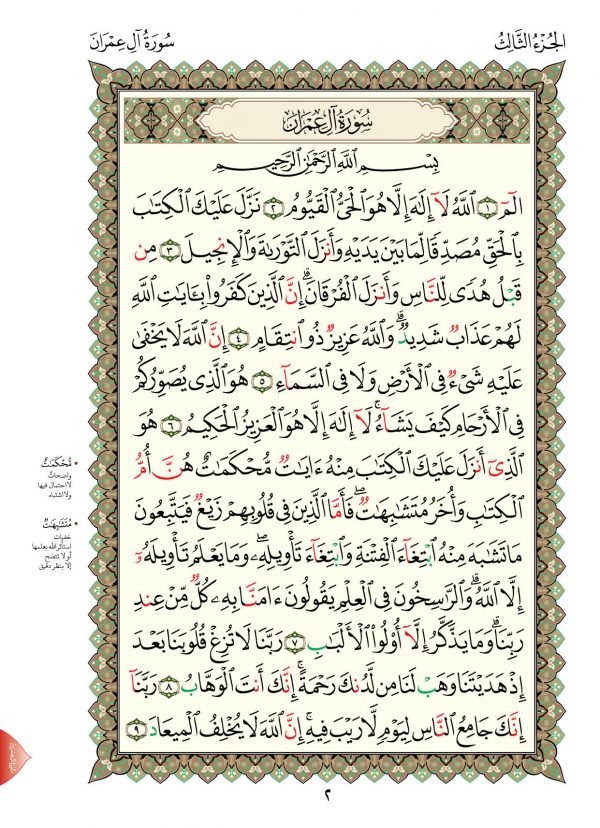 الجُزْءُ الثَّالِثُ
سُورَةُ آلِ عِمْرَانَ
سُورَةُ آلِ عِمْرَانَ
بِسْمِ اللَّهِ الرَّحْمَٰنِ الرَّحِيمِ
الٓمٓ ١ ٱللَّهُ لَآ إِلَٰهَ إِلَّا هُوَ ٱلْحَىُّ ٱلْقَيُّومُ ٢ نَزَّلَ عَلَيْكَ ٱلْكِتَٰبَ
بِٱلْحَقِّ مُصَدِّقًا لِّمَا بَيْنَ يَدَيْهِ وَأَنزَلَ ٱلتَّوْرَىٰةَ وَٱلْإِنجِيلَ ٣ مِن
قَبْلُ هُدًى لِّلنَّاسِ وَأَنزَلَ ٱلْفُرْقَانَ ۗ إِنَّ ٱلَّذِينَ كَفَرُوا۟ بِـَٔايَٰتِ ٱللَّهِ
لَهُمْ عَذَابٌ شَدِيدٌ ۗ وَٱللَّهُ عَزِيزٌ ذُو ٱنتِقَامٍ ٤ إِنَّ ٱللَّهَ لَا يَخْفَىٰ
عَلَيْهِ شَىْءٌ فِى ٱلْأَرْضِ وَلَا فِى ٱلسَّمَآءِ ٥ هُوَ ٱلَّذِى يُصَوِّرُكُمْ
فِى ٱلْأَرْحَامِ كَيْفَ يَشَآءُ ۚ لَآ إِلَٰهَ إِلَّا هُوَ ٱلْعَزِيزُ ٱلْحَكِيمُ ٦ هُوَ
ٱلَّذِىٓ أَنزَلَ عَلَيْكَ ٱلْكِتَٰبَ مِنْهُ ءَايَٰتٌ مُّحْكَمَٰتٌ هُنَّ أُمُّ
ٱلْكِتَٰبِ وَأُخَرُ مُتَشَٰبِهَٰتٌ ۖ فَأَمَّا ٱلَّذِينَ فِى قُلُوبِهِمْ زَيْغٌ فَيَتَّبِعُونَ
مَا تَشَٰبَهَ مِنْهُ ٱبْتِغَآءَ ٱلْفِتْنَةِ وَٱبْتِغَآءَ تَأْوِيلِهِۦ ۗ وَمَا يَعْلَمُ تَأْوِيلَهُۥٓ
إِلَّا ٱللَّهُ ۗ وَٱلرَّٰسِخُونَ فِى ٱلْعِلْمِ يَقُولُونَ ءَامَنَّا بِهِۦ كُلٌّ مِّنْ عِندِ
رَبِّنَا ۗ وَمَا يَذَّكَّرُ إِلَّآ أُو۟لُوا۟ ٱلْأَلْبَٰبِ ٧ رَبَّنَا لَا تُزِغْ قُلُوبَنَا بَعْدَ
إِذْ هَدَيْتَنَا وَهَبْ لَنَا مِن لَّدُنكَ رَحْمَةً ۚ إِنَّكَ أَنتَ ٱلْوَهَّابُ ٨ رَبَّنَآ
إِنَّكَ جَامِعُ ٱلنَّاسِ لِيَوْمٍ لَّا رَيْبَ فِيهِ ۚ إِنَّ ٱللَّهَ لَا يُخْلِفُ ٱلْمِيعَادَ ٩
• مُحْكَمَاتٌ
واضحاتٌ
لا احتمال فيها
ولا اشتباه
• مُتَشَابِهَاتٌ
خفيات
استأثر الله بعلمها
أو لا تتضح
إلا بنظر دقيق
٢